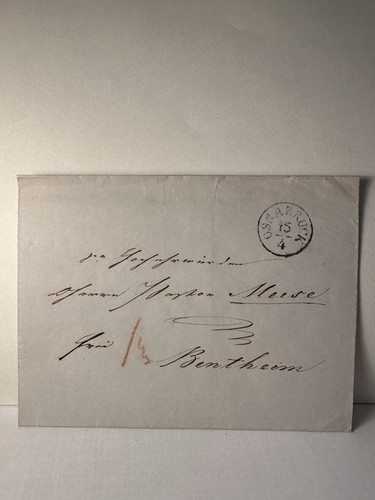 OSNABRÜCK
15
4
Hochehrwürden
Herrn Pastor Meese
frei
Bentheim